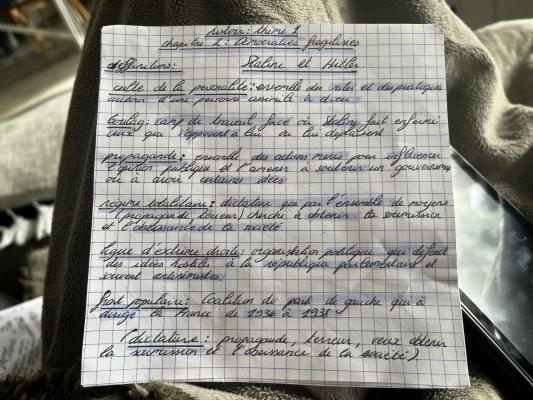 histoire: thème 1
chapitre 2: Démocraties fragilisées
définitions: Staline et Hitler
culte de la personnalité: ensemble des rites et des pratiques
autour d'une personne assimilé à dieu
Goulag: camp de travail forcé où Staline fait enfermé
ceux qui s'opposent à lui ou lui déplaisent
propagande: ensemble des actions menés pour influencer
l'opinion publique et l'amener à soutenir un gouvernement
ou à avoir certaines idées
régime totalitaire: dictature qui par l'ensemble de moyens
(propagande, terreur) cherche à obtenir la soumission
et l'obéissance de la société
ligue d'extrême droite: organisation politique qui défend
des idées hostiles à la république parlementaire et
souvent antisémistes
front populaire: Coalition de parti de gauche qui à
dirigé la France de 1936 à 1938
(dictature: propagande, terreur, veux obtenir
la soumission et l'obéissance de la société)